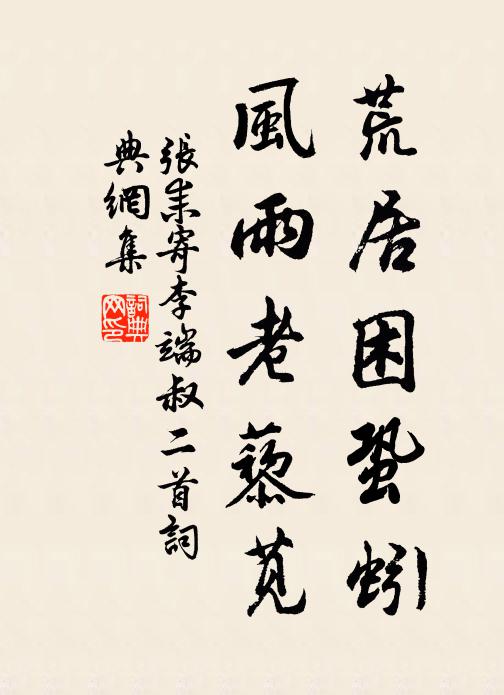 荒居困蛩蚓
風雨老藜莧
張耒寄李端叔二首詞
典網集
詞典網印